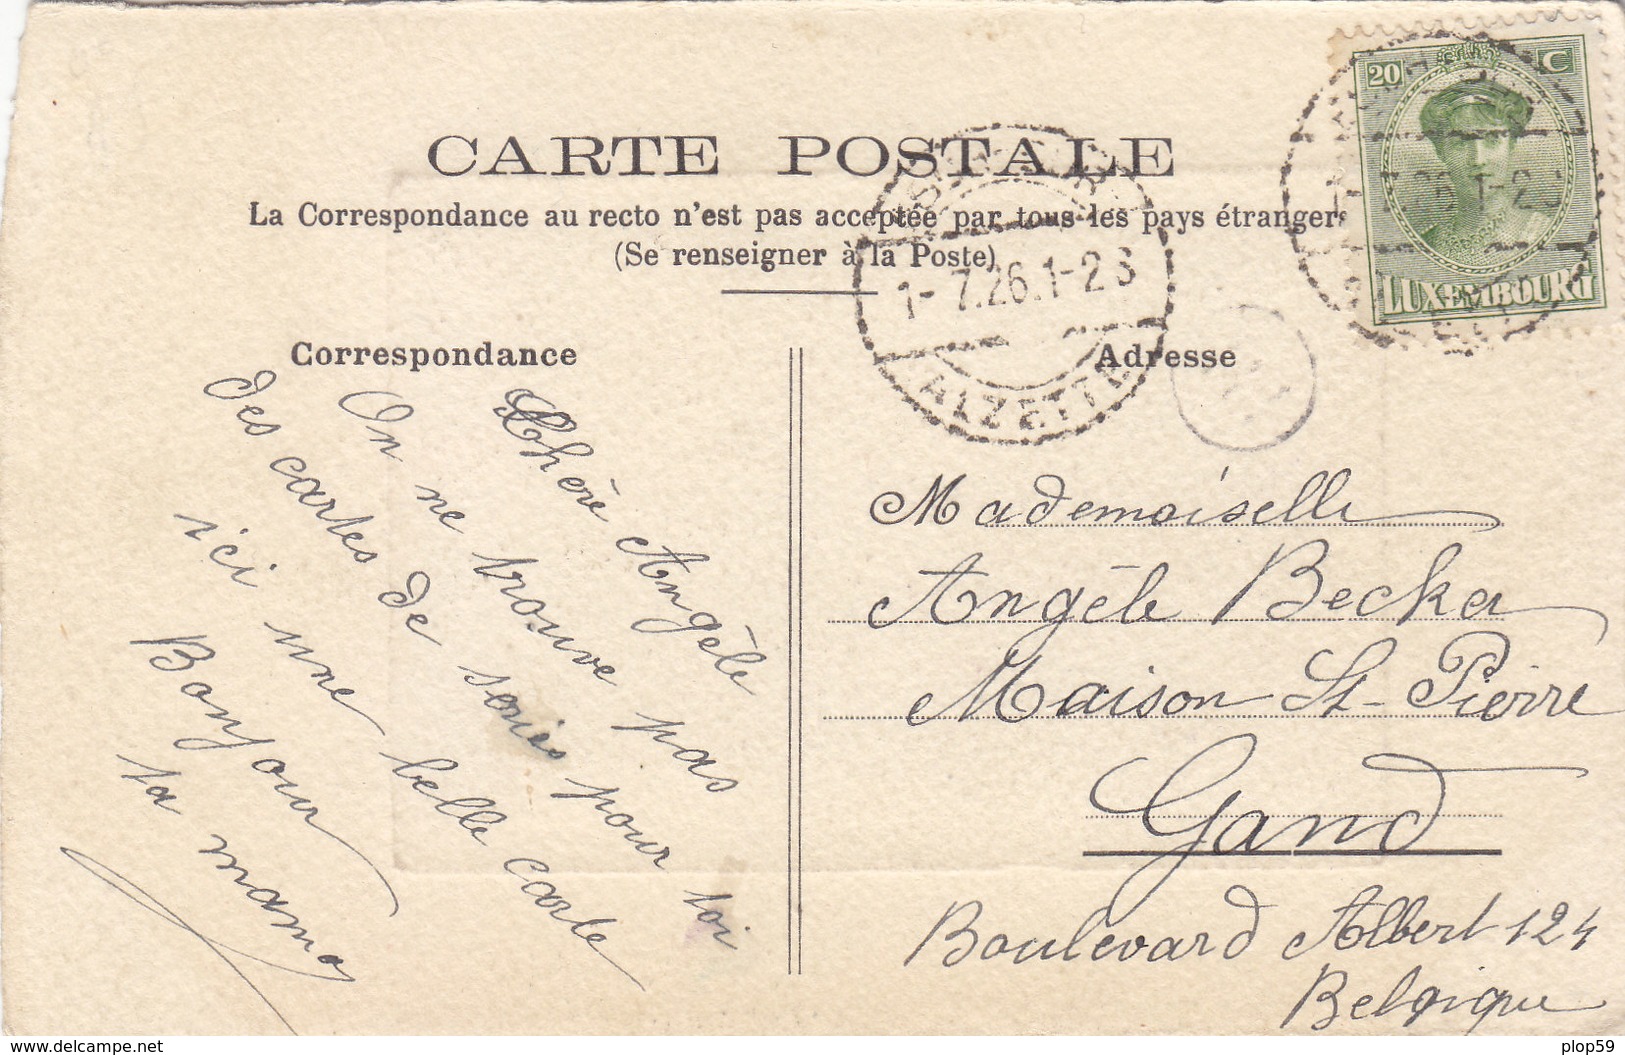 CARTE POSTALE
La Correspondance au recto n'est pas acceptée par tous les pays étrangers
(Se renseigner à la Poste)
Correspondance
Adresse
20 C
LUXEMBOURG
1-7.26.1-2S
ALZETTE
Chère Angèle
On ne trouve pas
des cartes de series pour toi
ici une belle carte
Bonjour
ta mama
Mademoiselle
Angèle Becker
Maison St-Pierre
Gand
Boulevard Albert 124
Belgique
www.delcampe.net
plop59